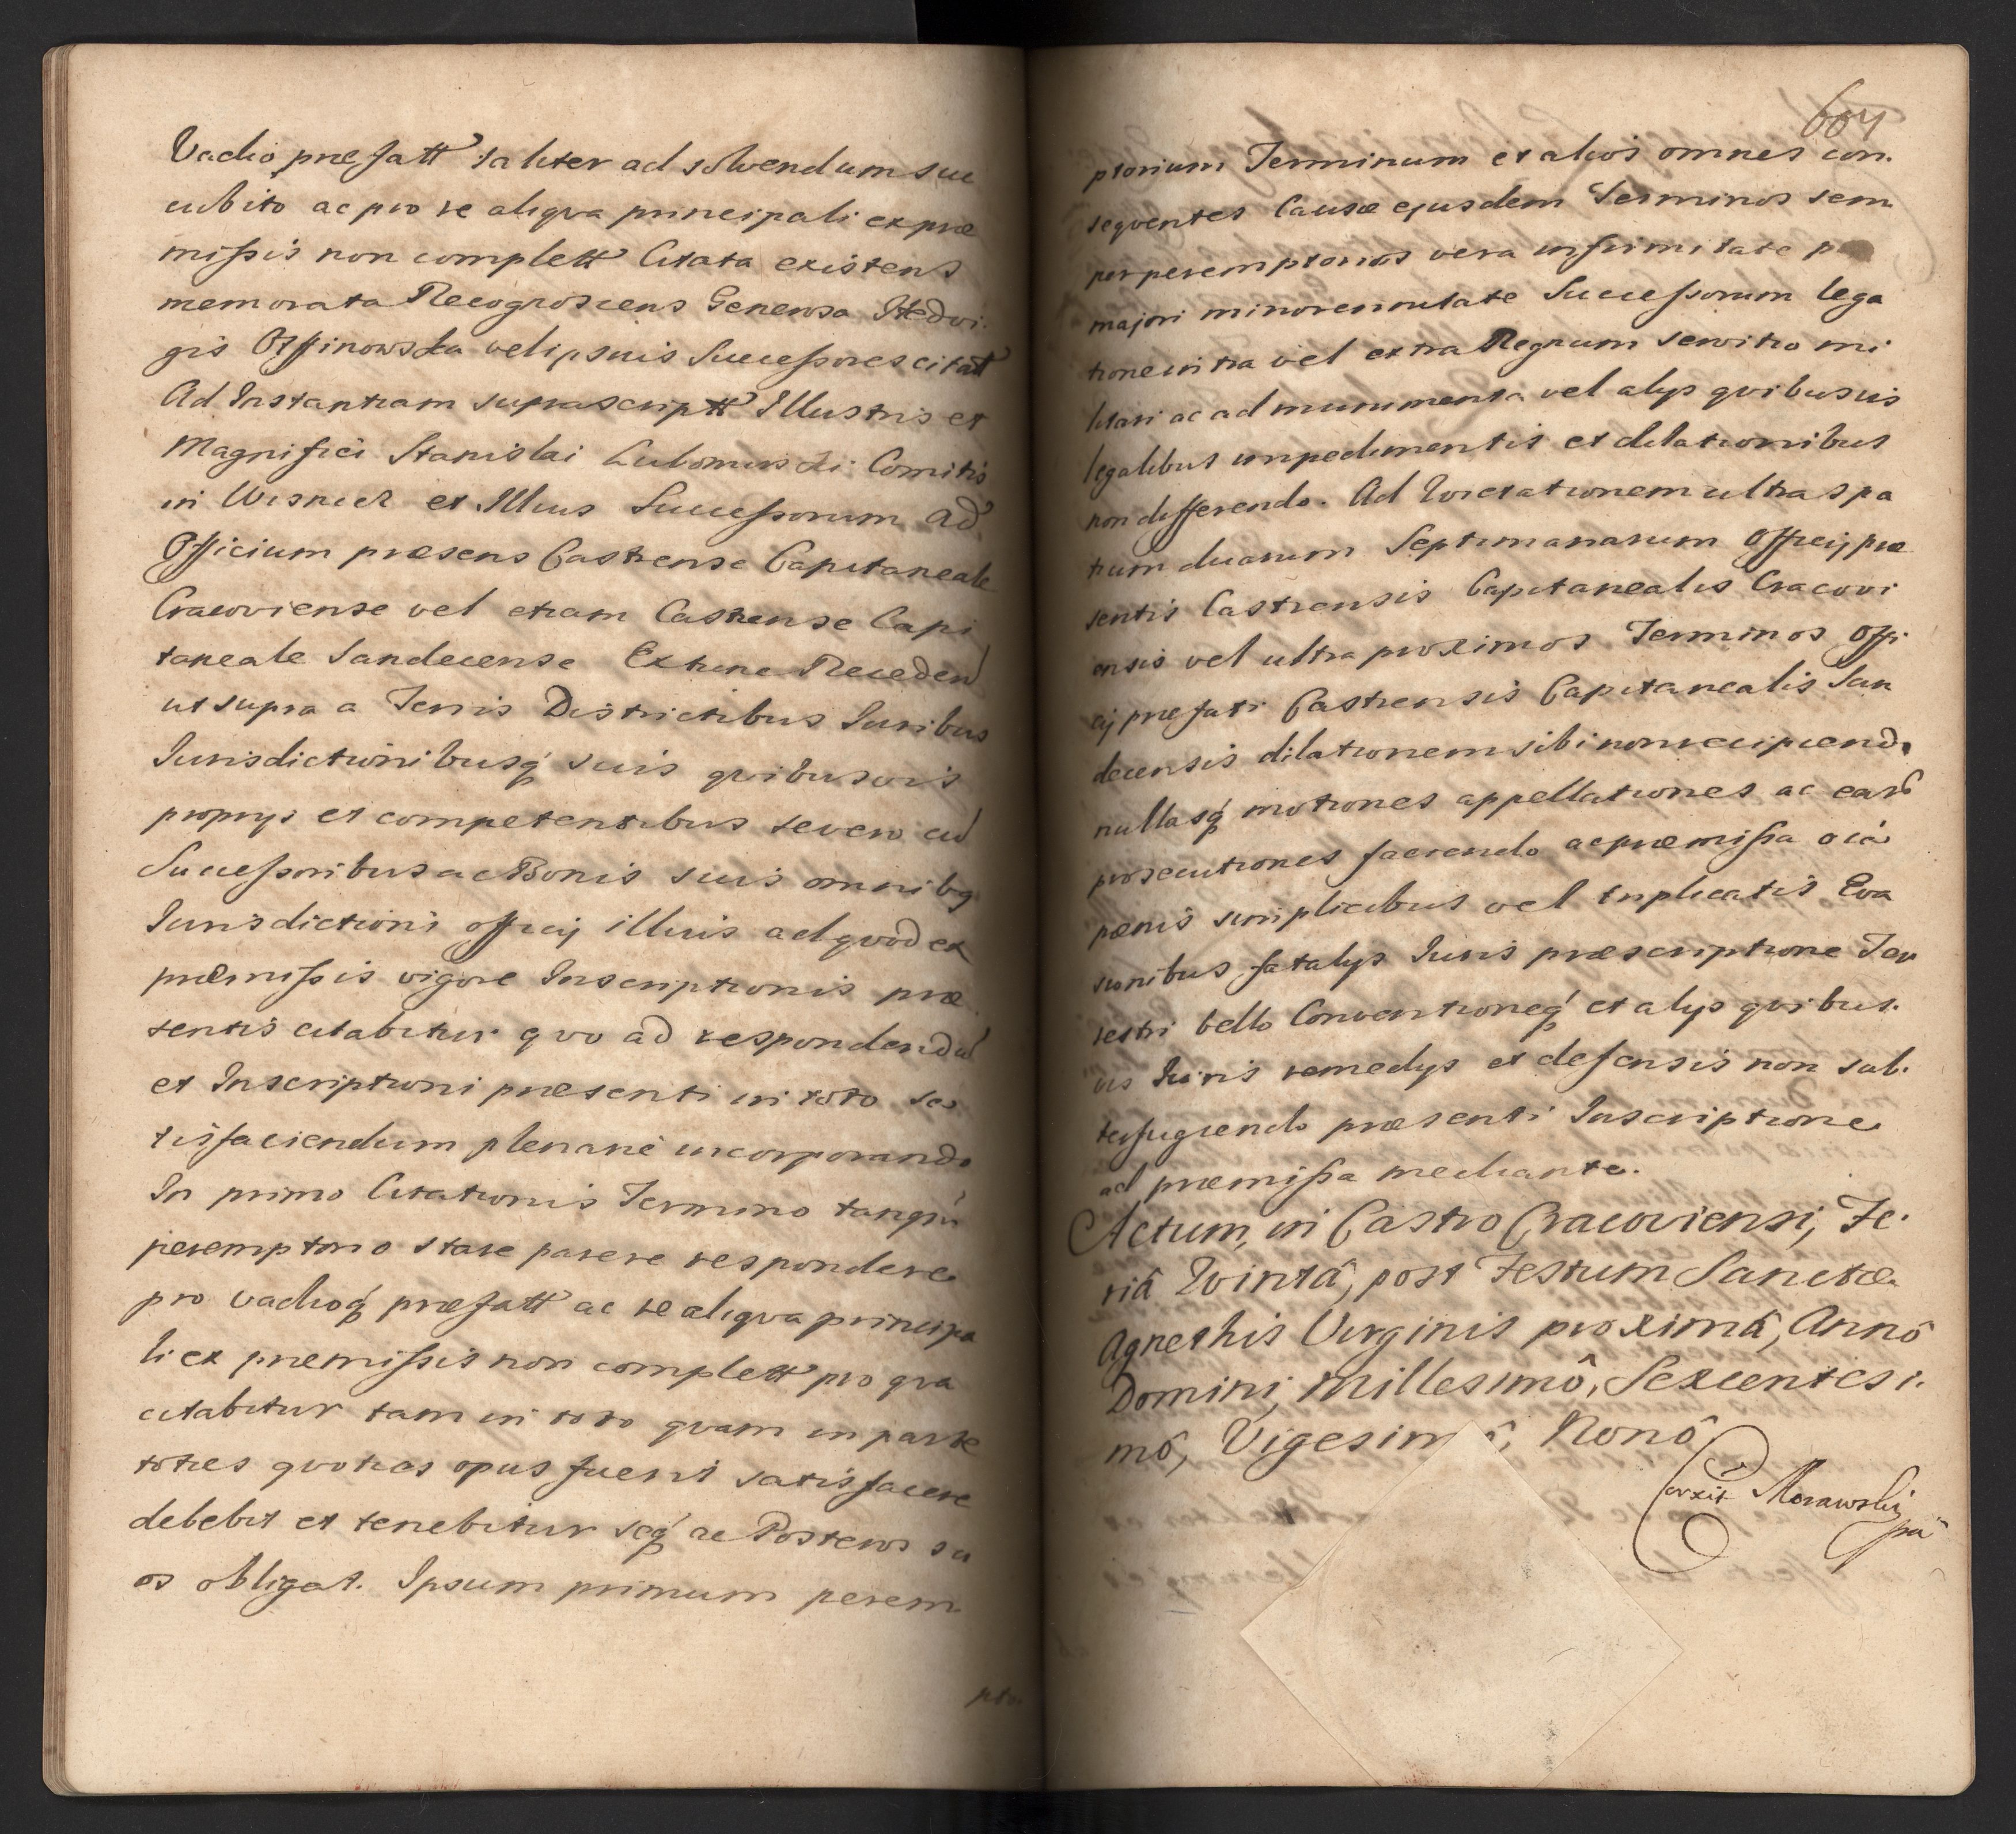 Vadio præfatt taliter ad solvendum suc
cubito ac pro re aliqva principali ex præ
missis non complett Citata existens
memorata Recognoscens Generosa Hedvi.
gis Ossinowska vel ipsius Successores citatt
Ad Instantiam suprascriptt Illustris et
Magnifici Stanislai Lubomirski Comitis
in Wisnicz et Illius Successorum ad
Officium præsens Castrense Capitaneale
Cracoviense vel etiam Castrense Capi
taneale Sandecense Extunc Recedend
ut supra a Terris Districtibus Iuribus
Iurisdictionibusq suis qvibusvis
proprijs et competentibus se vero cu
Successoribus ac Bonis suis omnibq
Iurisdictioni officij illius ad qvod ex
præmissis vigore Inscriptionis præ
sentis citabitur qvo ad respondendu
et Inscriptioni præsenti in toto sa
tisfaciendum plenarie incorporando
In primo Citationis Termino tanqm
peremptorio stare parere respondere
pro vadioq præfatt ac re aliqva principa
li ex præmissis non complett pro qva
citabitur tam in toto qvam in parte
toties qvoties opus fuerit satisfacere
debebit et tenebitur seq ac Posteros su
os obligat. Ipsum primum perem
pto.
604
ptorium Terminum et alios omnes con.
seqventes Causæ ejusdem Terminos sem
per peremptorios vera infirmitate
majori minorennitate Successorum lega
tione intra vel extra Regnum servitio mi
litari ac ad munimenta vel alijs qvibusvis
legalibus impedimentis et dilationibus
non differendo. Ad Qvietationem ultra spa
tium duarum Septimanarum Officij præ
sentis Castrensis Capitanealis Cracovi
ensis vel ultra proximos Terminos Offi
cij præfati Castrensis Capitanealis San
decensis dilationem sibi non recipiend.
nullasq motiones appellationes ac earu
prosecutiones faciendo ac præmissa oia
pænis simplicibus vel triplicatis Eva
sionibus fatalijs Iuris præscriptione Ter
restri bello Conventioneq et alijs qvibus.
vis Iuris remedijs et defensis non sub.
terfugiendo præsenti Inscriptione
ad præmissa mediante.
Actum, in Castro Cracoviensi, Fe.
riâ Qvintâ, post Festum Sanctæ
Agnethis Virginis proximâ, Annô
Domini, Millesimô, Sexcentesi.
mô, Vigesimô, Nonô
Corxit Morawski